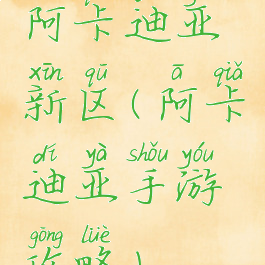 阿卡迪亚
xīn qū ā qiǎ
新区(阿卡
dí yà shǒu yóu
迪亚手游
gōng lüè
攻略)